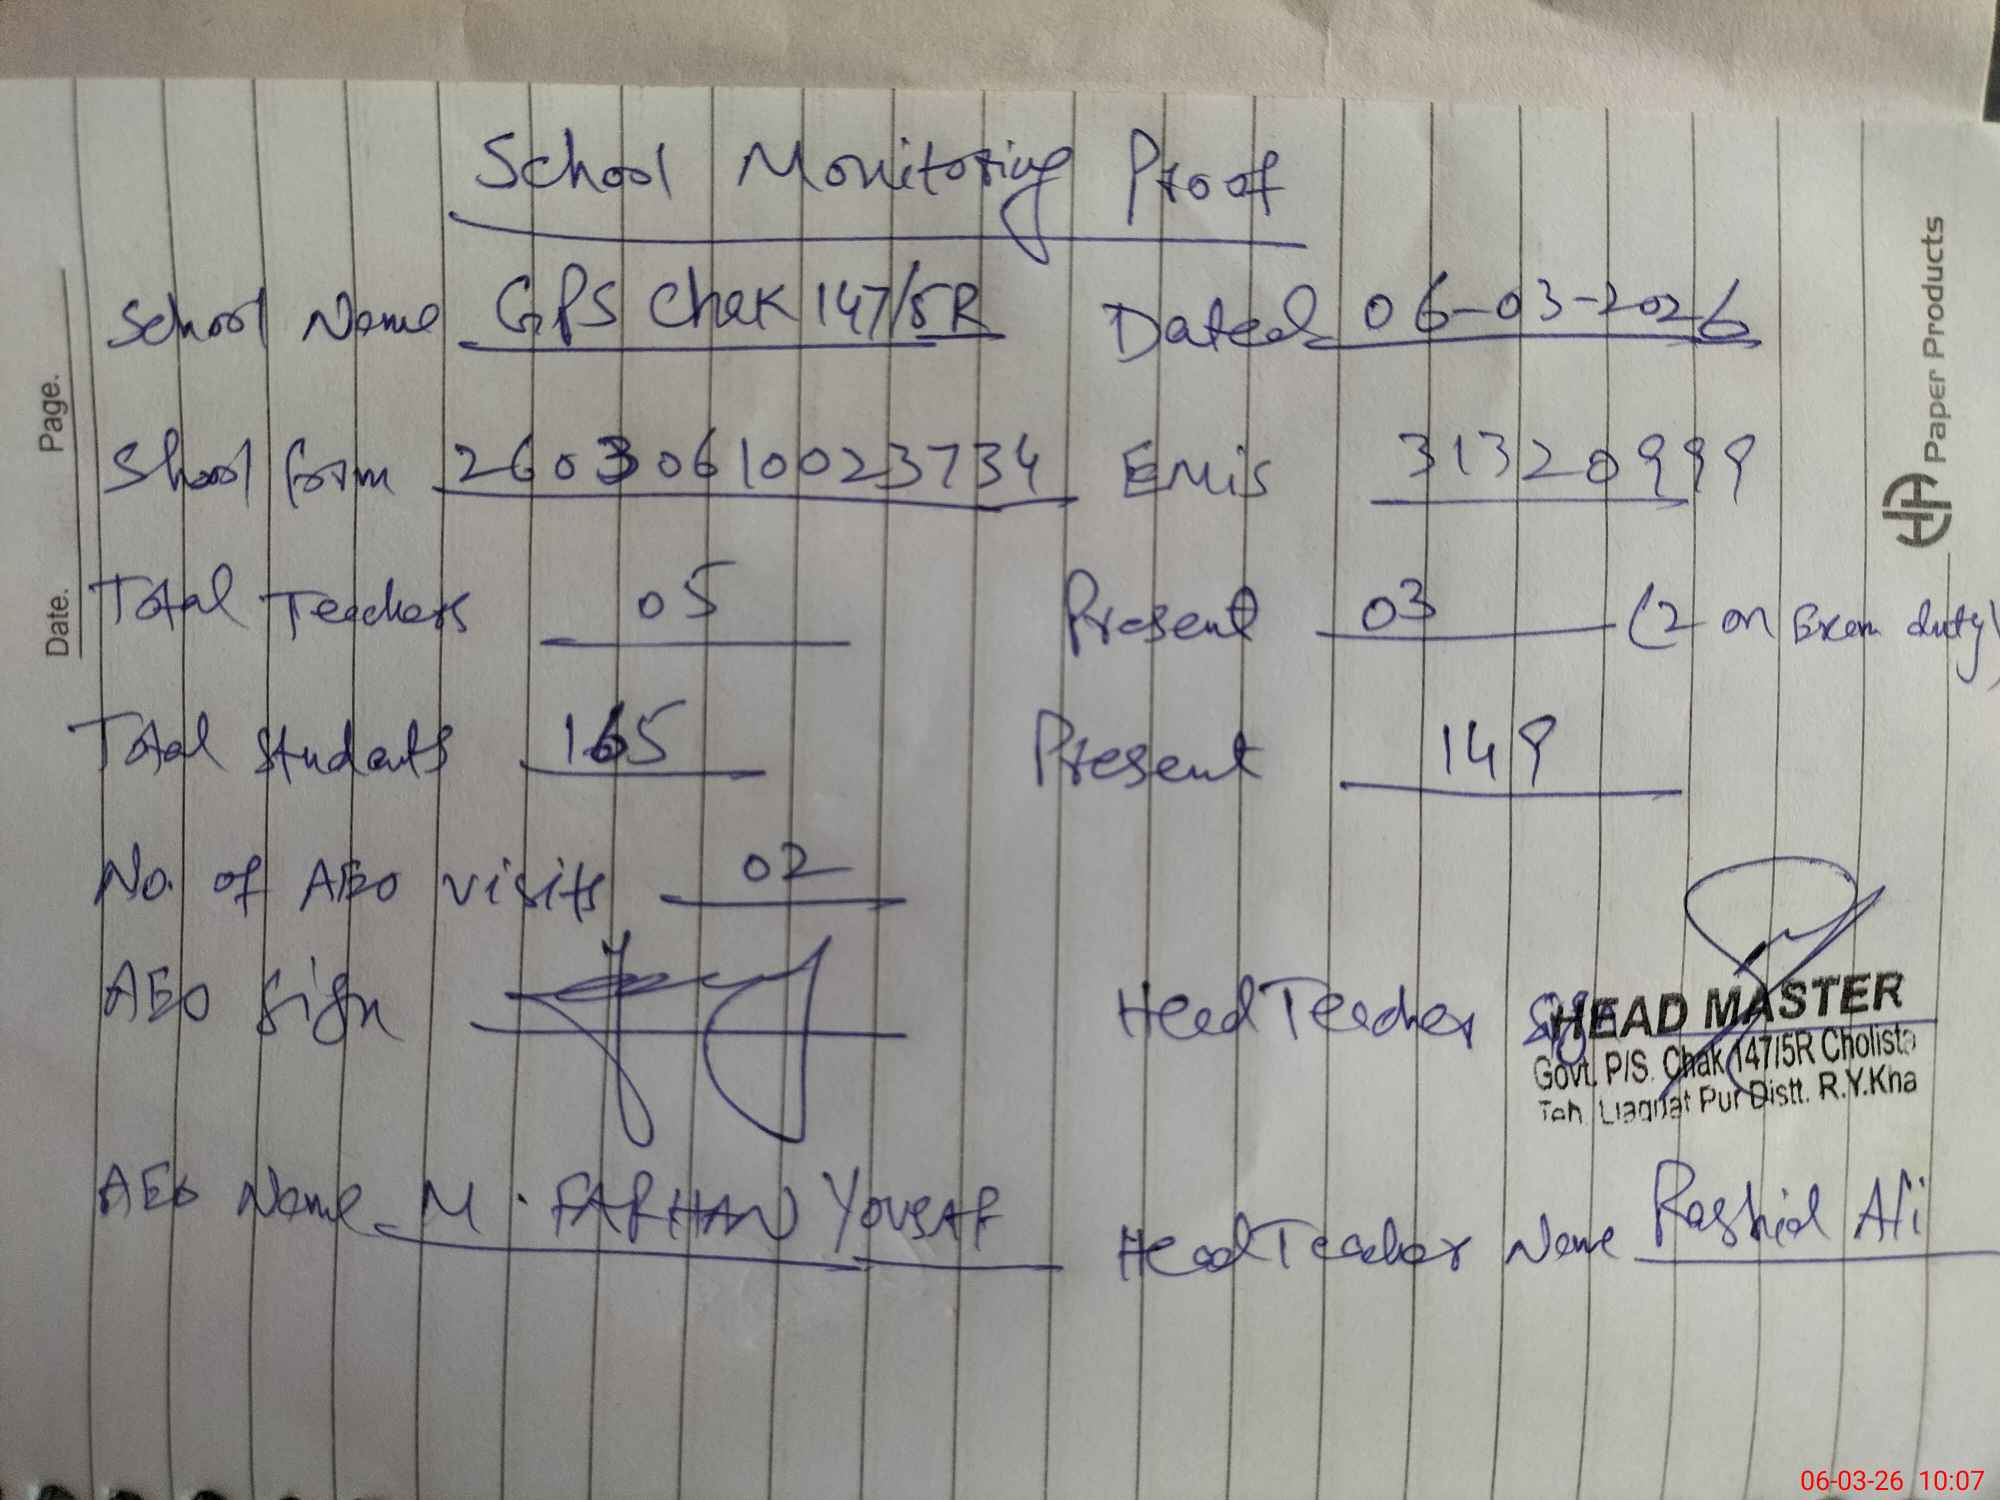 School Monitoring Proof
School Name GPS Chak 147/5R Dated 06-03-2026
Shool form 26030610023734 EMis 31320999
Total Teachers 05 Present 03 (2 on Exam duty)
Total students 165 Present 149
No. of AEO visits 02
AEO Sign HeadTeacher Sign
HEAD MASTER
Govt. P/S. Chak 147/5R Cholista
Teh. Liaquat Pur Distt. R.Y.Kha
AEO Name M. FARHAN YOUSAF HeadTeacher Name Rashid Ali
Date. Page.
HP Paper Products
06-03-26 10:07